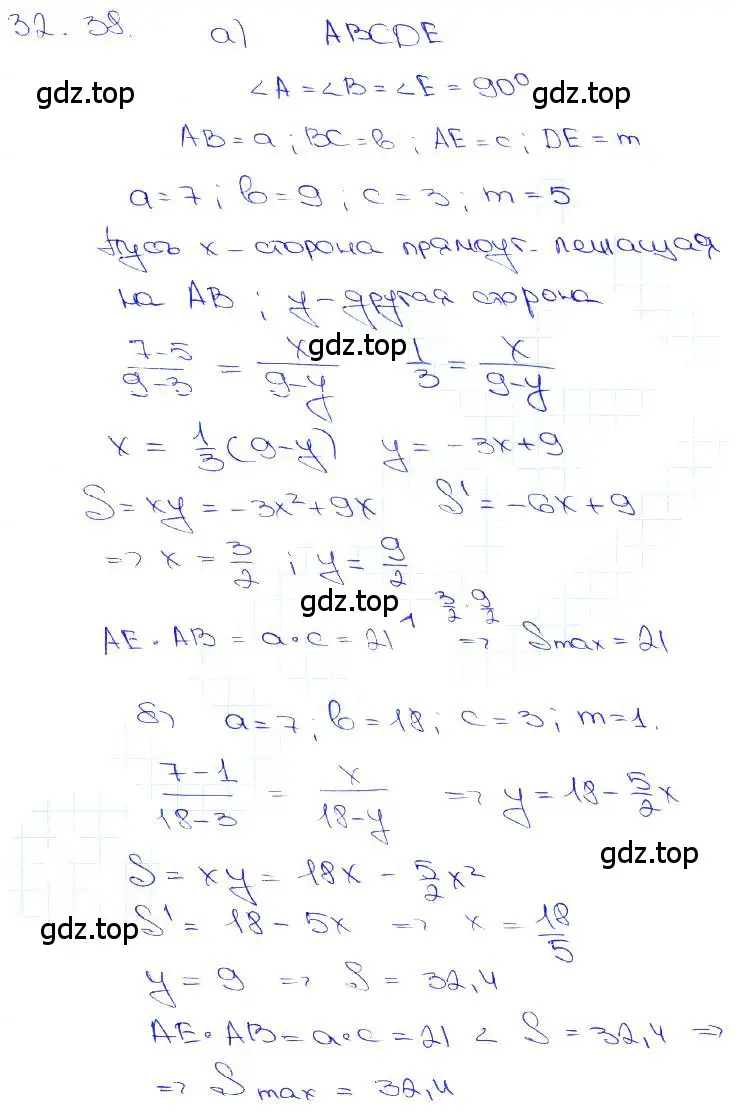 32.38. а) ABCDE
∠A = ∠B = ∠E = 90°
gdz.top gdz.top
AB = a ; BC = b ; AE = c ; DE = m
a = 7 ; b = 9 ; c = 3 ; m = 5
Пусть x - сторона прямоуг. лежащая
на AB ; y - другая сторона
(7-5)/(9-3) = x/(9-y) gdz.top 1/3 = x/(9-y)
x = 1/3 (9-y) y = -3x+9
S = xy = -3x²+9x S' = -6x+9
=> x = 3/2 ; y = 9/2
gdz.top 3/2 · 9/2
AE · AB = a·c = 21 => Smax = 21
б) a = 7 ; b = 18 ; c = 3 ; m = 1.
(7-1)/(18-3) = x/(18-y) => y = 18 - 5/2 x
gdz.top
S = xy = 18x - 5/2 x²
gdz.top S' = 18 - 5x => x = 18/5
y = 9 => S = 32,4
AE · AB = a·c = 21 < S = 32,4 =>
=> Smax = 32,4